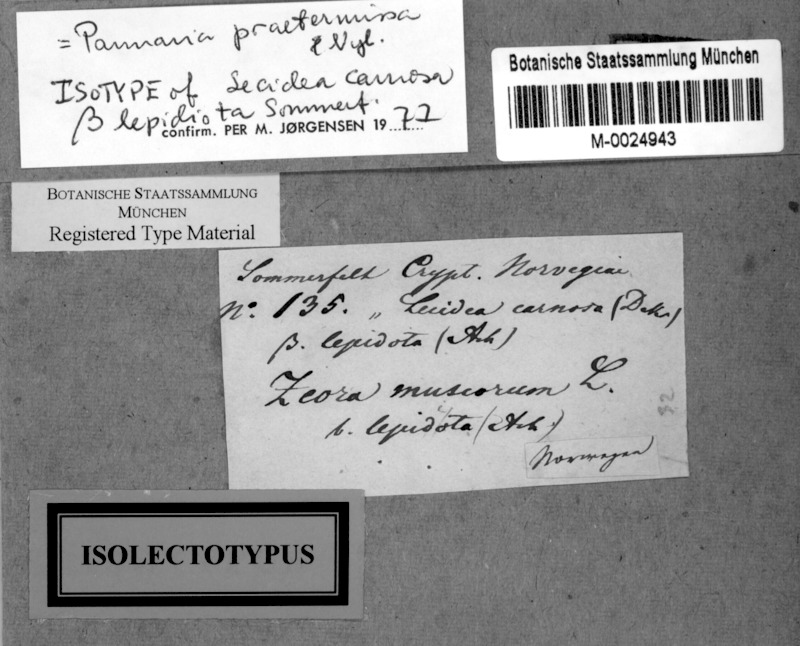 = Pannaria praetermissa
Nyl.
ISOTYPE of Lecidea carnosa
β lepidiota Sommerf.
confirm. PER M. JØRGENSEN 1977
Botanische Staatssammlung München
M-0024943
BOTANISCHE STAATSSAMMLUNG
MÜNCHEN
Registered Type Material
Sommerfelt Crypt. Norvegiae
No. 135. „ Lecidea carnosa (Dcks)
β. lepidota (Ach)
Zeora muscorum L.
b. lepidota (Ach.)
Norwegen
92
ISOLECTOTYPUS